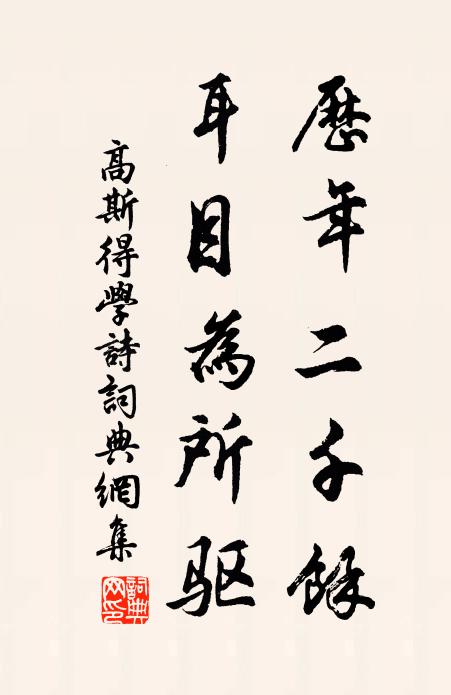 歷年二千餘
耳目為所驱
高斯得學詩詞典網集
詞典网印